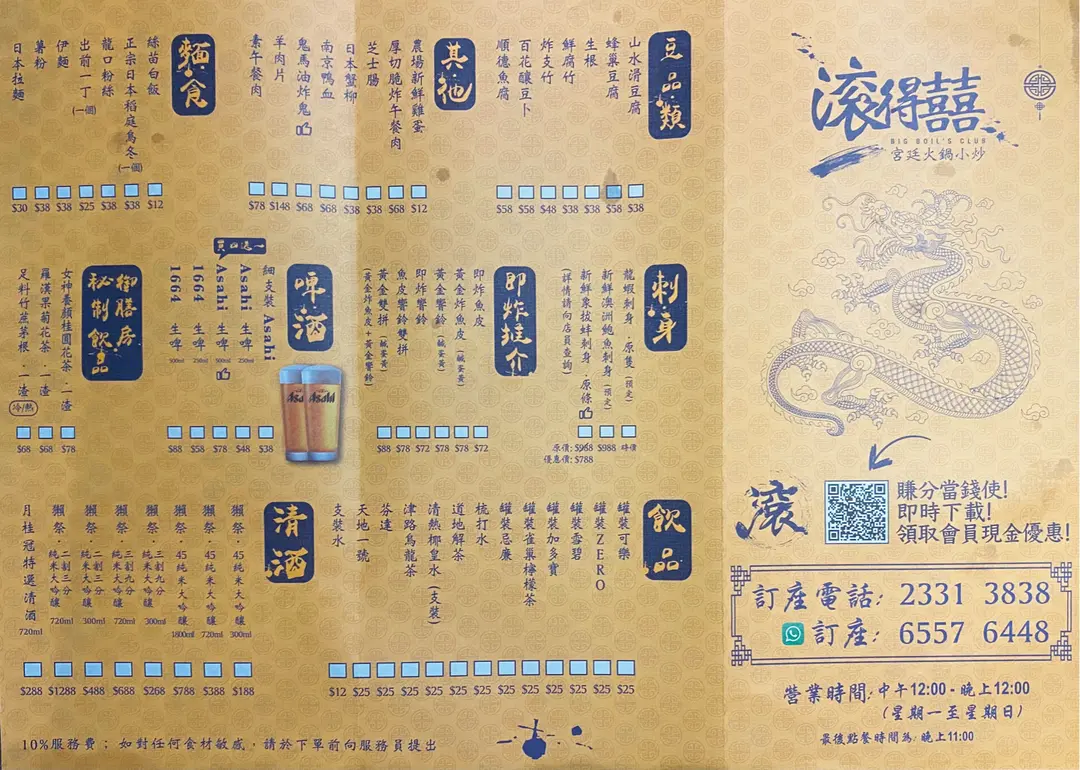 滾得囍
BIG BOIL'S CLUB
宮廷火鍋小炒
滾
賺分當錢使!
即時下載!
領取會員現金優惠!
訂座電話: 2331 3838
訂座: 6557 6448
營業時間: 中午12:00 - 晚上12:00
(星期一至星期日)
最後點餐時間為: 晚上11:00
豆品類
山水滑豆腐 $38
蜂巢豆腐 $58
生根 $38
鮮腐竹 $38
炸支竹 $48
百花釀豆卜 $58
順德魚腐 $58
其他
農場新鮮雞蛋 $12
厚切脆炸午餐肉 $68
芝士腸 $38
日本蟹柳 $38
南京鴨血 $68
鬼馬油炸鬼 $68
羊肉片 $148
素午餐肉 $78
麵食
絲苗白飯 $12
正宗日本稻庭烏冬(一個) $38
龍口粉絲 $38
出前一丁(一個) $25
伊麵 $38
薯粉 $38
日本拉麵 $30
刺身
龍蝦刺身 · 原隻(預定) 時價
新鮮澳洲鮑魚刺身(預定) $988
新鮮象拔蚌刺身 · 原條 原價: $968 優惠價: $788
(詳情請向店員查詢)
即炸推介
即炸魚皮 $72
黃金炸魚皮(鹹蛋黃) $78
黃金響鈴(鹹蛋黃) $78
即炸響鈴 $72
魚皮響鈴雙拼 $78
黃金雙拼 $88
(黃金炸魚皮+黃金響鈴)
啤酒
細支裝 Asahi $38
買四送一
Asahi 生啤 250ml $48
Asahi 生啤 500ml $78
1664 生啤 250ml $58
1664 生啤 500ml $88
Asahi
御膳房
秘制飲品
女神養顏桂圓花茶 · 一渣 $78
羅漢果菊花茶 · 一渣 $68
足料竹蔗茅根 · 一渣 冷/熱 $68
飲品
罐裝可樂 $25
罐裝ZERO $25
罐裝雪碧 $25
罐裝加多寶 $25
罐裝雀巢檸檬茶 $25
罐裝忌廉 $25
梳打水 $25
道地解茶 $25
清熱椰皇水(支裝) $25
津路烏龍茶 $25
芬達 $25
天地一號 $25
支裝水 $12
清酒
獺祭 · 45純米大吟釀 300ml $188
獺祭 · 45純米大吟釀 720ml $388
獺祭 · 45純米大吟釀 1800ml $788
獺祭 · 三割九分純米大吟釀 300ml $268
獺祭 · 三割九分純米大吟釀 720ml $688
獺祭 · 二割三分純米大吟釀 300ml $488
獺祭 · 二割三分純米大吟釀 720ml $1288
月桂冠特選清酒 720ml $288
10%服務費; 如對任何食材敏感,請於下單前向服務員提出